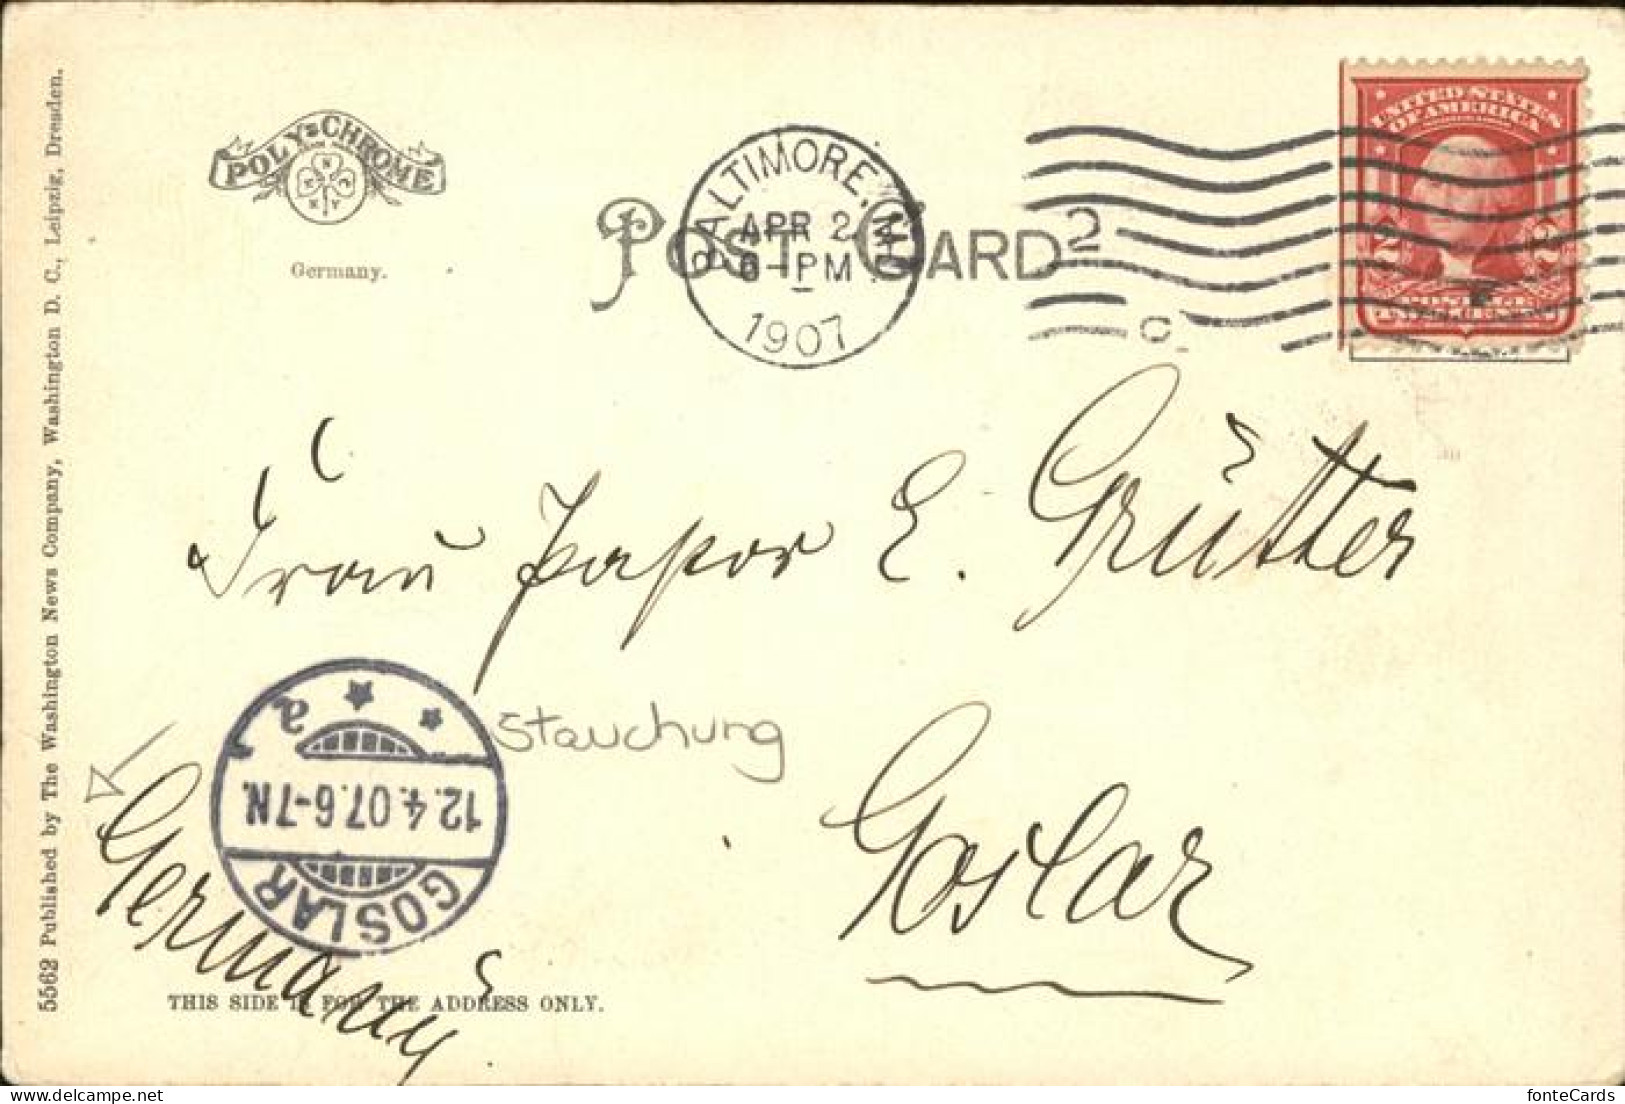 5562 Published by The Washington News Company, Washington D. C., Leipzig, Dresden.
POLY=CHROME
Germany.
POST CARD
BALTIMORE, MD
APR 2
6-PM
1907
2
C
UNITED STATES
OF AMERICA
2 2
POSTAGE
Frau Pastor E. Grütter
Stauchung
Goslar
GOSLAR
12.4.07.6-7N.
a
Germany
THIS SIDE IS FOR THE ADDRESS ONLY.
fonteCards